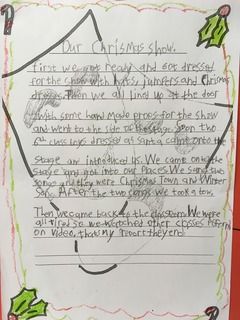 Our Chrismas show.
First we got ready and got dressed
for the show with hats, jumpers and Chrismas
dresses. Then we all lined up at the door
with some hand made props for the show
and went to the side of the stage. Soon two
6th class boys dressed as santa came onto the
stage and introduced us. We came onto the
stage and got into our places. We sang two
songs and they were Chrismas Town and Winter
Song. After the two songs we took a bow.
Then we came back to the classroom. We were
all tired so we watched other classes
on video, thats my report they end.